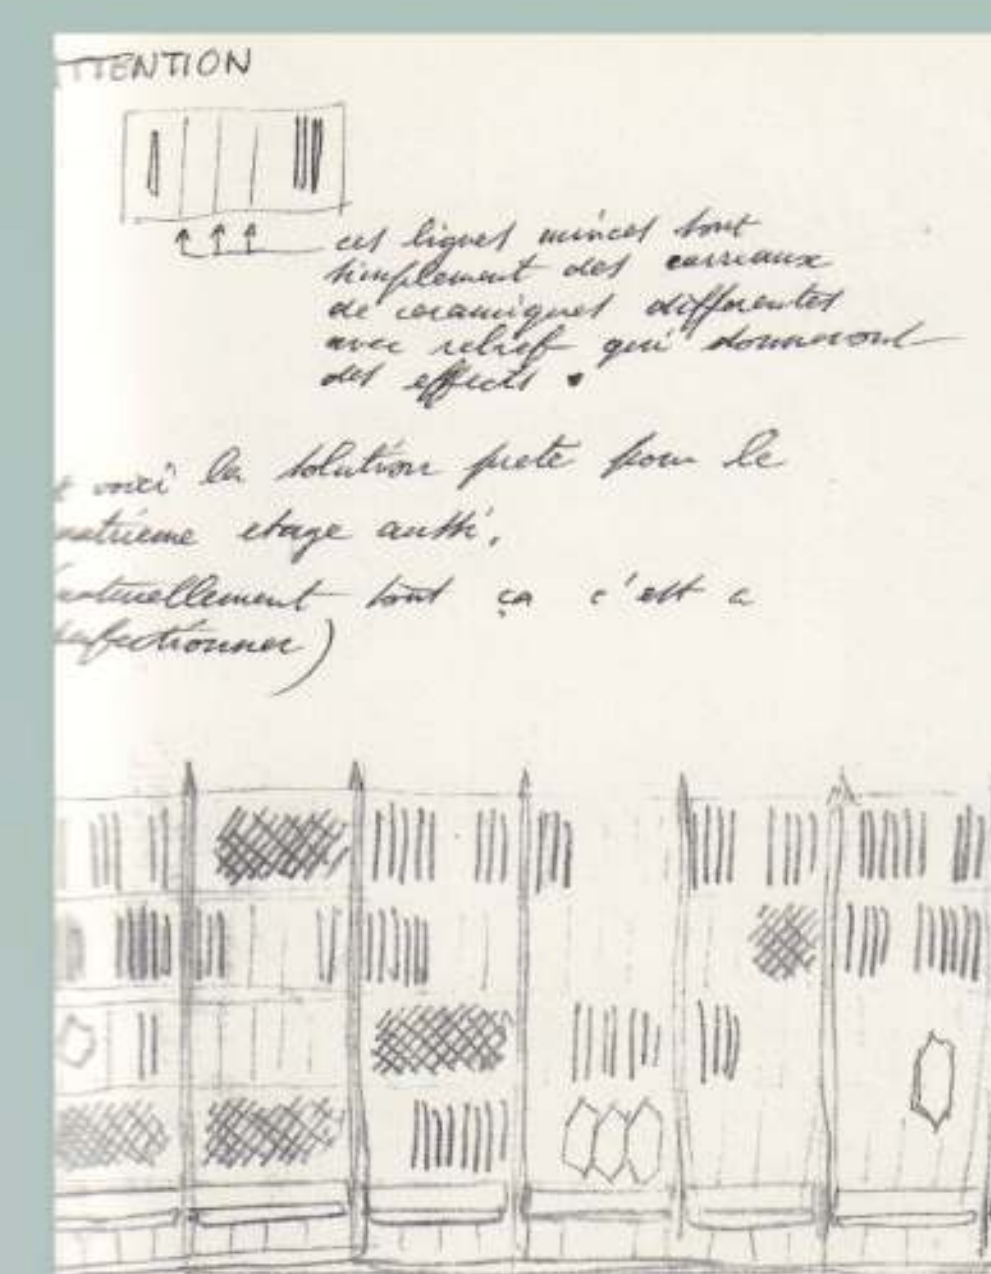 ATTENTION
ces lignes minces sont
simplement des carreaux
de ceramiques differentes
avec relief qui donneront
des effects.
voici la solution prete pour le
etage aussi.
naturellement tout ça c'est a
perfectionner)